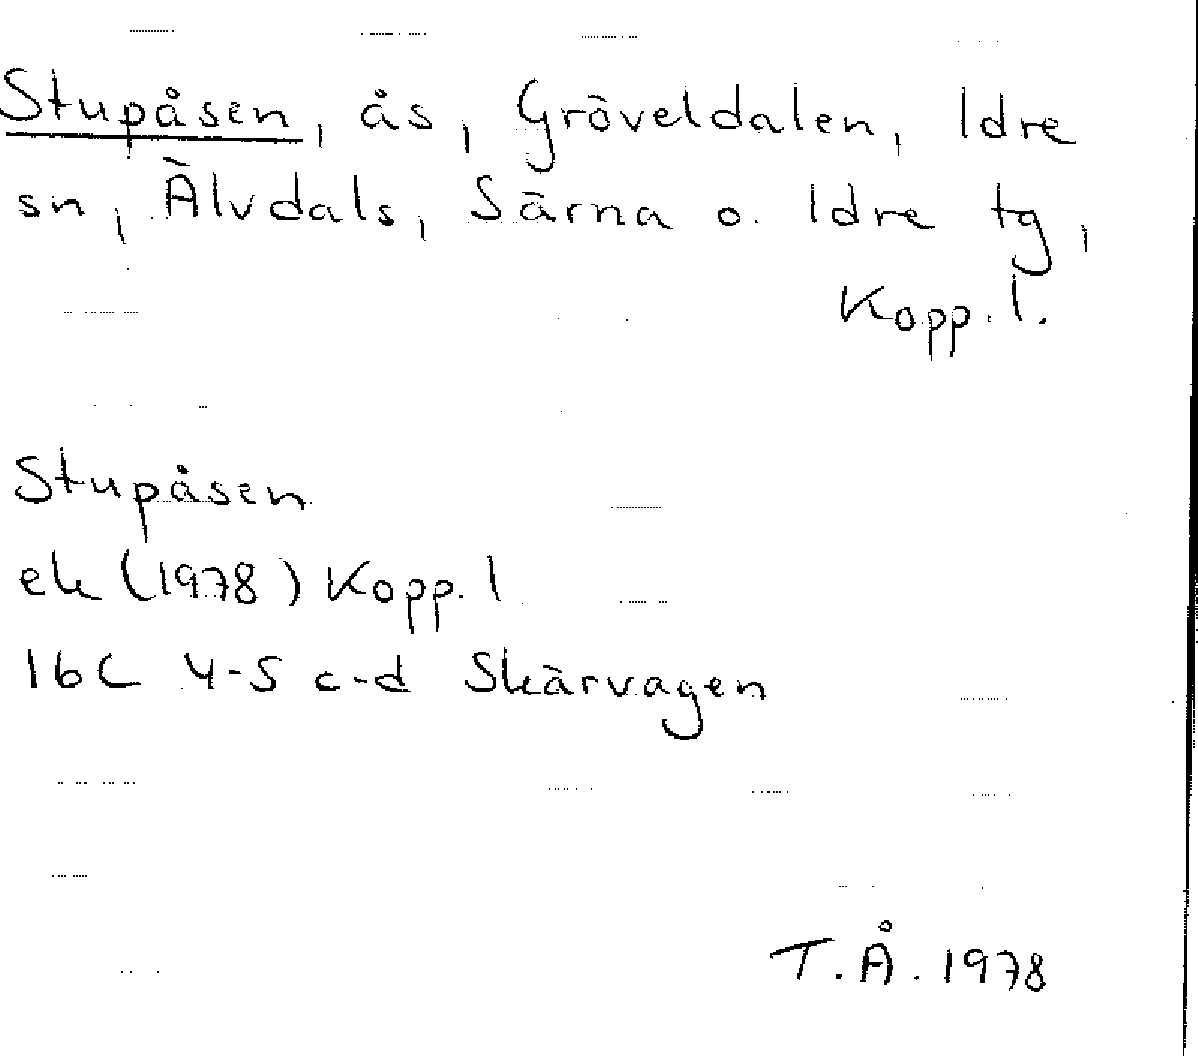 Stupåsen, ås, Gröveldalen, Idre
sn, Älvdals, Särna o. Idre tg,
Kopp. l.
Stupåsen
ek (1978) Kopp. l
16C 4-5 c-d Skärvagen
T.Å. 1978